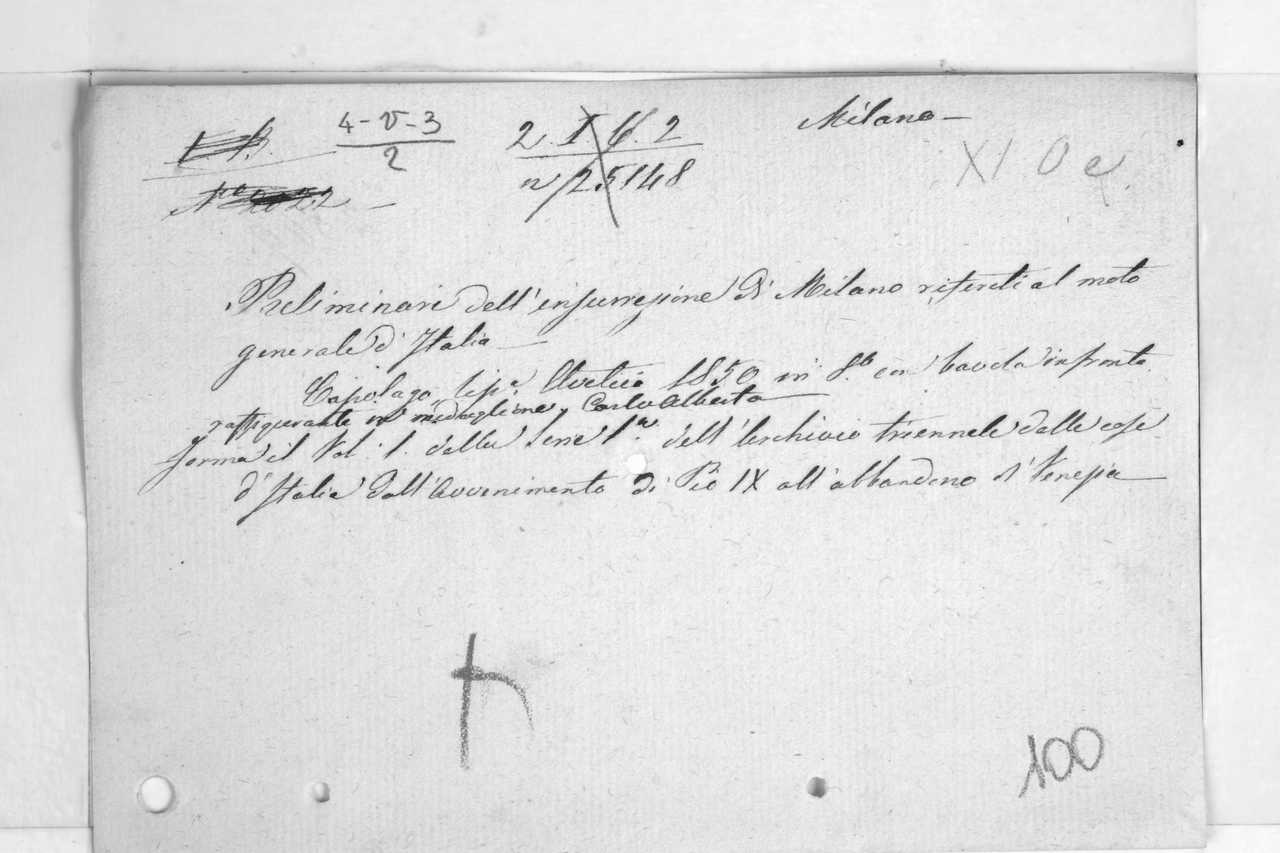 4-V-3
2
2 I 6. 2
n 25148
Milano
XI O e
Preliminari dell'insurrezione di Milano riferiti al moto
generale d'Italia
Capolago tip.a Elvetica 1850 in 8.o con tavola in fronte
raffigurante in medaglione Carlo Alberto
forma il Vol. 1. della Serie 1.a dell'Archivio triennale delle cose
d'Italia dall'Avvenimento di Pio IX all'abbandono di Venezia
100